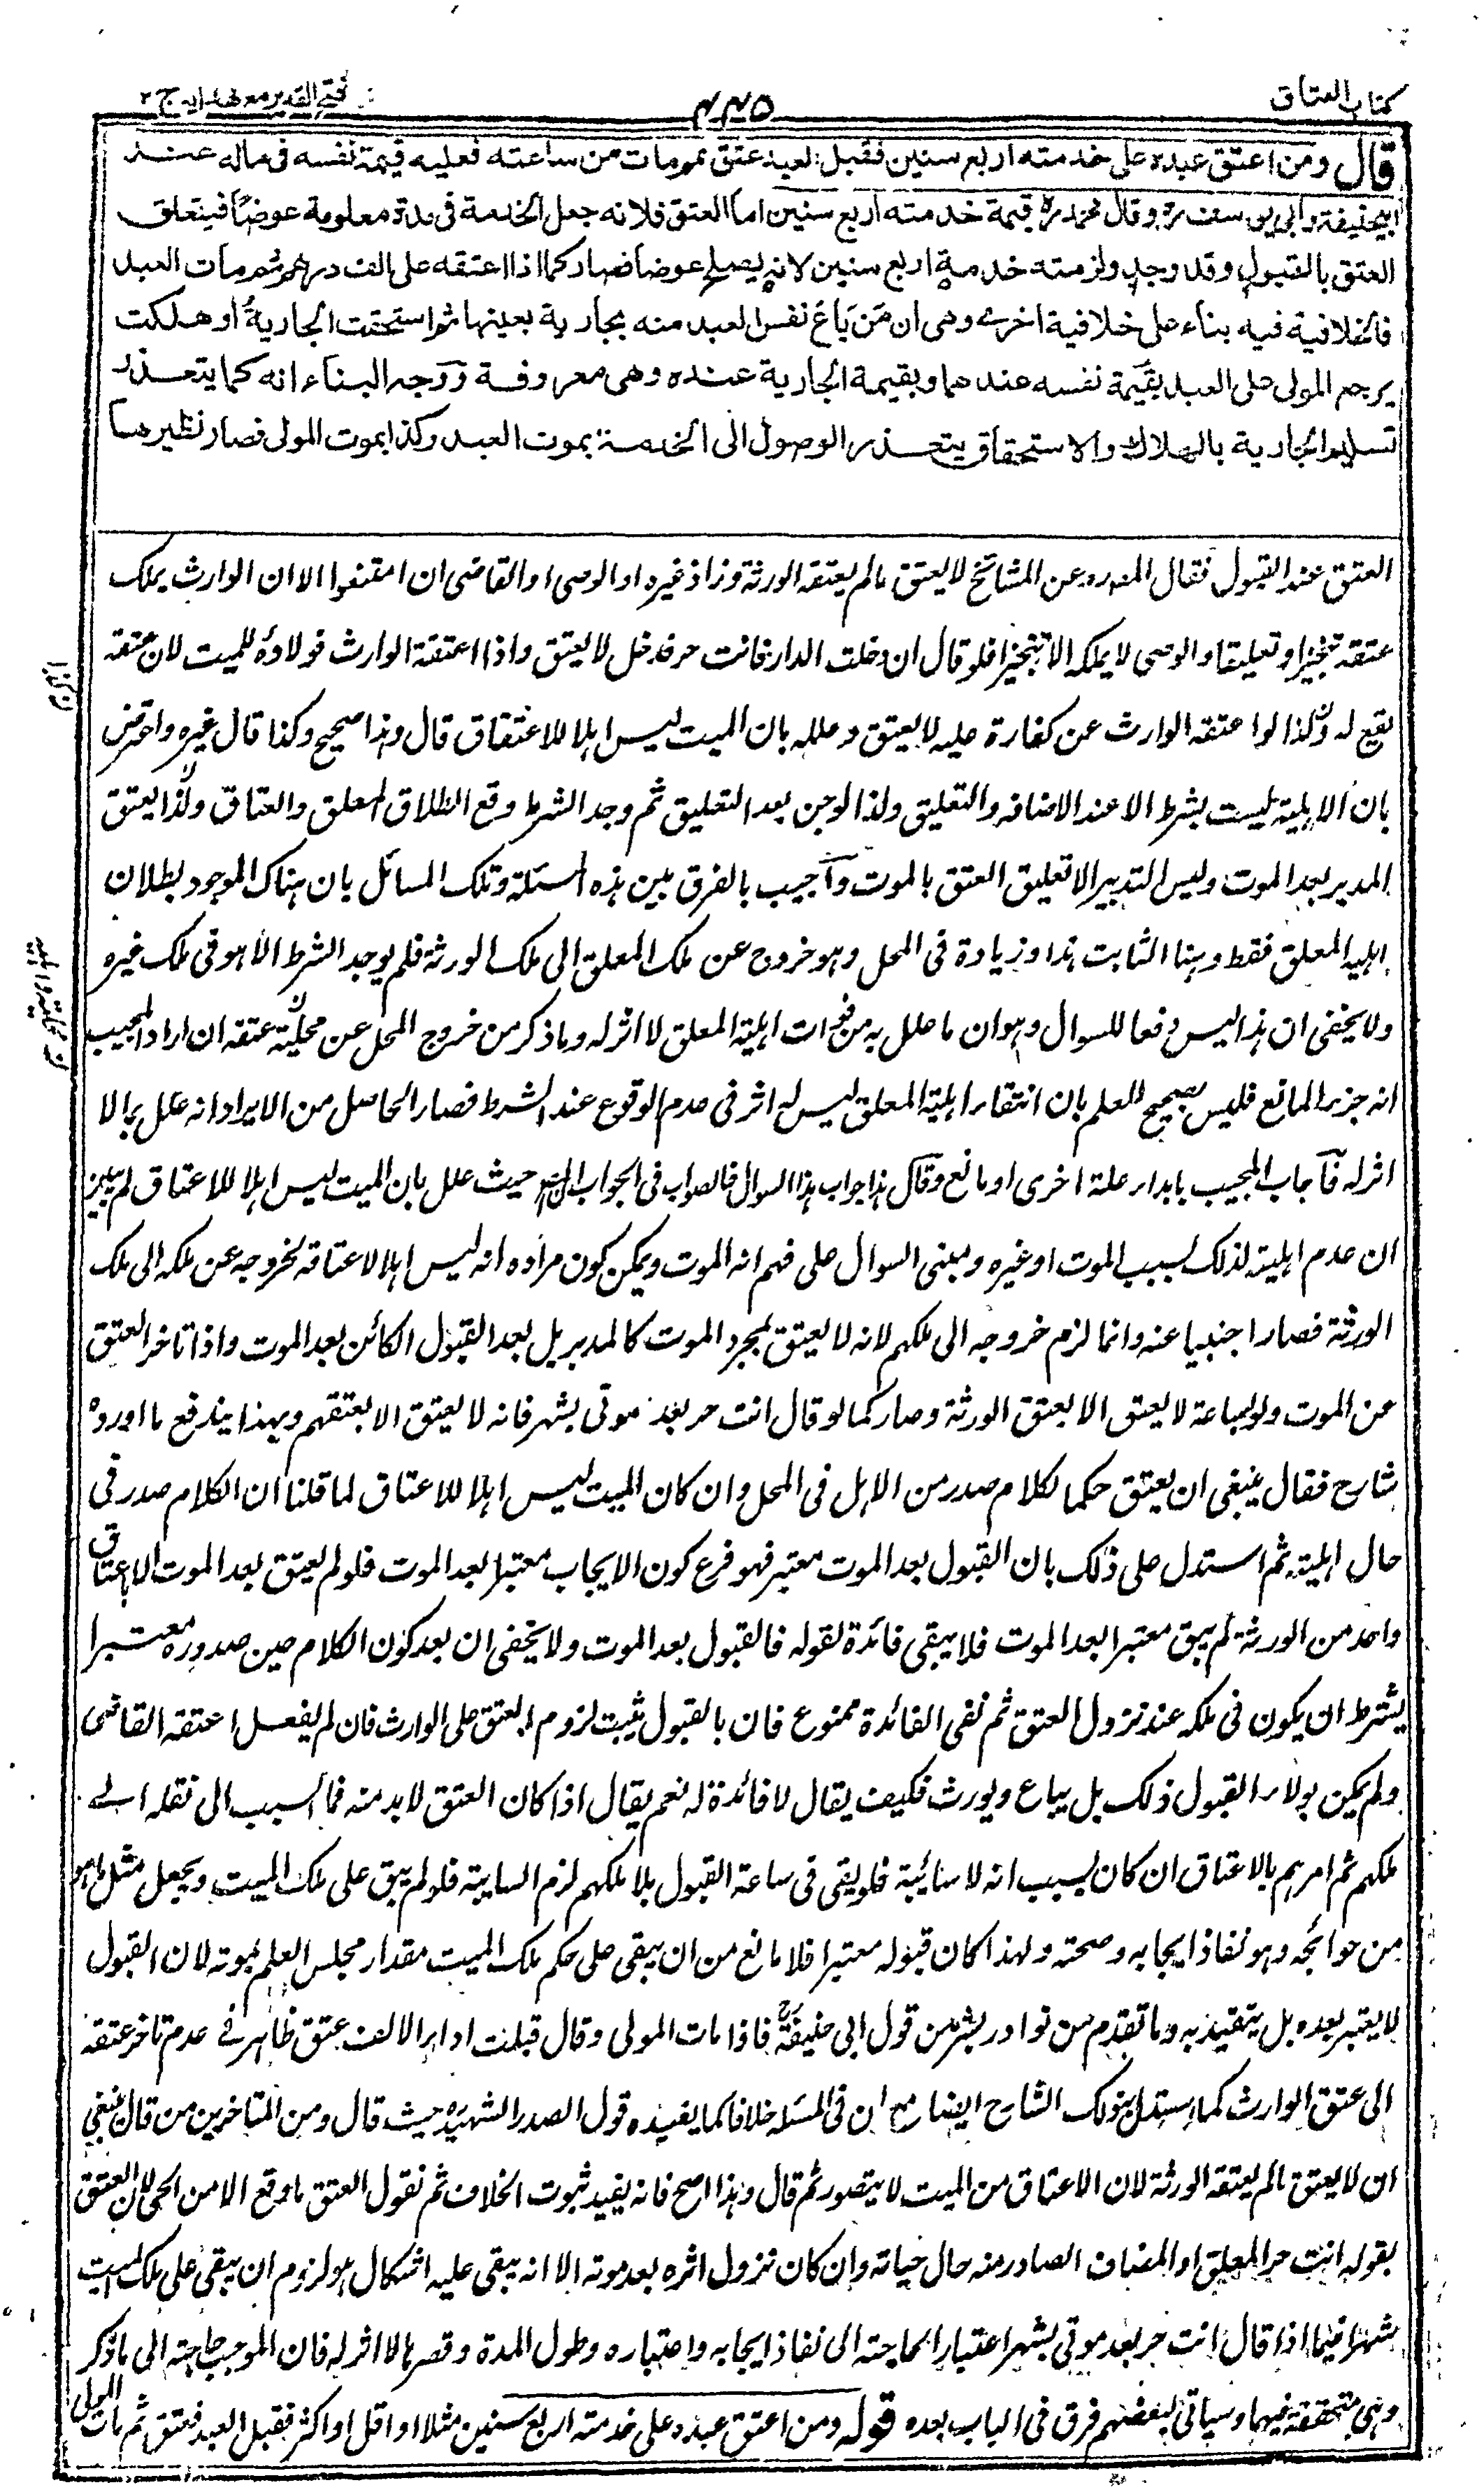 كتاب العتاق
٤٤٥
فتح القدير مع هدايه ج ٢
قال ومن اعتق عبده على خدمته اربع سنين فقبل العبد عتق ثم مات من ساعته فعليه قيمة نفسه فى ماله عند
ابيحنيفة وابى يوسف رح وقال محمد رح قيمة خدمته اربع سنين اما العتق فلانه جعل الخدمة فى مدة معلومة عوضا فيتعلق
العتق بالقبول وقد وجد ولزمته خدمة اربع سنين لانه يصلح عوضا فصار كما اذا اعتقه على الف درهم ثم مات العبد
فالخلافية فيه بناء على خلافية اخرى وهى ان من باع نفس العبد منه بجارية بعينها ثم استحقت الجارية او هلكت
يرجع المولى على العبد بقيمة نفسه عندهما وبقيمة الجارية عنده وهى معروفة ووجه البناء انه كما يتعذر
تسليم الجارية بالهلاك والاستحقاق يتعذر الوصول الى الخدمة بموت العبد وكذا بموت المولى فصار نظيرها
العتق عند القبول فقال المص ره عن المشائخ لا يعتق مالم يعتقه الورثة وزاد غيره او الوصى او القاضى ان امتنعوا الا ان الوارث يملك
عتقه تنجيزا وتعليقا والوصى لا يملكه الا تنجيزا فلو قال ان دخلت الدار فانت حر فدخل لا يعتق واذا اعتقه الوارث فولاؤه للميت لان عتقه
يقع له ولذا لو اعتقه الوارث عن كفارة عليه لا يعتق وعلله بان الميت ليس اهلا للاعتاق قال وهذا صحيح وكذا قال غيره واعترض
بان الاهلية ليست بشرط الا عند الاضافة والتعليق ولذا لو جن بعد التعليق ثم وجد الشرط وقع الطلاق المعلق والعتاق ولذا يعتق
المدبر بعد الموت وليس التدبير الا تعليق العتق بالموت واجيب بالفرق بين هذه المسئلة وتلك المسائل بان هناك الموجود بطلان
اهلية المعلق فقط وهنا الثابت هذا وزيادة فى المحل وهو خروج عن ملك المعلق الى ملك الورثة فلم يوجد الشرط الا وهو فى ملك غيره
ولا يخفى ان هذا ليس دفعا للسوال وهو ان ما علل به من فوات اهلية المعلق لا اثر له وما ذكر من خروج المحل عن محلية عتقه ان اراد المجيب
انه جزء المانع فليس بصحيح للعلم بان انتفاء اهلية المعلق ليس له اثر فى عدم الوقوع عند الشرط فصار الحاصل من الايراد انه علل بما لا
اثر له فاجاب المجيب بابداء علة اخرى او مانع وقال هذا جواب هذا السوال فالصواب فى الجواب ان المص حيث علل بان الميت ليس اهلا للاعتاق لم يبين
ان عدم اهليته لذلك بسبب الموت او غيره ومبنى السوال على فهم انه الموت ويمكن كون مراده انه ليس اهلا لاعتاقه لخروجه عن ملكه الى ملك
الورثة فصار اجنبيا عنه وانما لزم خروجه الى ملكهم لانه لا يعتق بمجرد الموت كالمدبر بل بعد القبول الكائن بعد الموت واذا تاخر العتق
عن الموت ولو بساعة لا يعتق الا بعتق الورثة وصار كما لو قال انت حر بعد موتى بشهر فانه لا يعتق الا بعتقهم وبهذا يندفع ما اورده
شارح فقال ينبغى ان يعتق حكما لكلام صدر من الاهل فى المحل وان كان الميت ليس اهلا للاعتاق لما قلنا ان الكلام صدر فى
حال اهليته ثم استدل على ذلك بان القبول بعد الموت معتبر فهو فرع كون الايجاب معتبرا بعد الموت فلو لم يعتق بعد الموت الا باعتاق
واحد من الورثة لم يبق معتبرا بعد الموت فلا يبقى فائدة لقوله فالقبول بعد الموت ولا يخفى ان بعد كون الكلام حين صدوره معتبرا
يشترط ان يكون فى ملكه عند نزول العتق ثم نفى الفائدة ممنوع فان بالقبول يثبت لزوم العتق على الوارث فان لم يفعل اعتقه القاضى
ولم يكن بولاء القبول ذلك بل يباع ويورث فكيف يقال لا فائدة له نعم يقال اذا كان العتق لابد منه فما السبب الى نقله الى
ملكهم ثم امرهم بالاعتاق ان كان بسبب انه لا سائبة فلو بقى فى ساعة القبول بلا ملكهم لزم السايبة فلو لم يبق على ملك الميت ويجعل مثل ما هو
من حوائجه وهو نفاذ ايجابه وصحته ولهذا كان قبوله معتبرا فلا مانع من ان يبقى على حكم ملك الميت مقدار مجلس العلم بموته لان القبول
لا يعتبر بعده بل يتقيد به وما تقدم من نوادر بشر من قول ابى حنيفة رح فاذا مات المولى وقال قبلت اداء الالف عتق ظاهر فى عدم تاخر عتقه
الى عتق الوارث كما استدل بذلك الشارح ايضا مع ان فى المسئلة خلافا كما يفيده قول الصدر الشهيد ره حيث قال ومن المتاخرين من قال ينبغى
ان لا يعتق مالم يعتقه الورثة لان الاعتاق من الميت لا يتصور ثم قال وهذا اصح فانه يفيد ثبوت الخلاف ثم نقول العتق ما وقع الا من الحى لان العتق
بقوله انت حر المعلق او المضاف الصادر منه حال حياته وان كان نزول اثره بعد موته الا انه يبقى عليه اشكال هو لزوم ان يبقى على ملك الميت
شهرا فيما اذا قال انت حر بعد موتى بشهر اعتبارا لحاجته الى نفاذ ايجابه واعتباره وطول المدة وقصرها لا اثر له فان الموجب حاجته الى ما ذكر
وهى متحققة فيهما وسياتى لبعضهم فرق فى الباب بعده قوله ومن اعتق عبده على خدمته اربع سنين مثلا او اقل او اكثر فقبل العبد فعتق ثم مات المولى